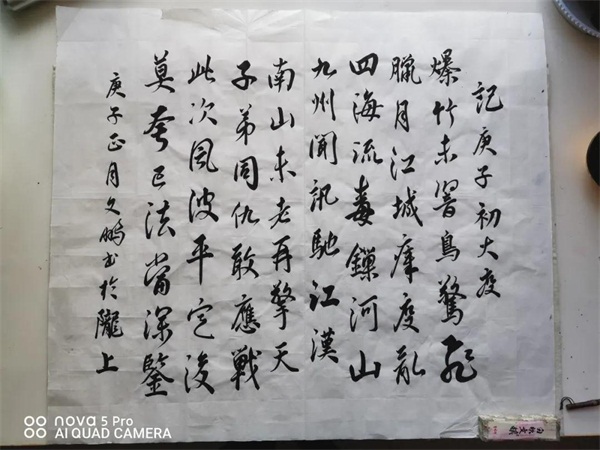 記庚子初大疫
爆竹未響鳥驚飛
臘月江城瘴疫亂
四海流毒鏁河山
九州聞訊馳江漢
南山未老再擎天
子弟同仇敢應戰
此次風波平定後
莫夸己法當深鑒
庚子正月文鵬書於隴上
nova 5 Pro
AI QUAD CAMERA